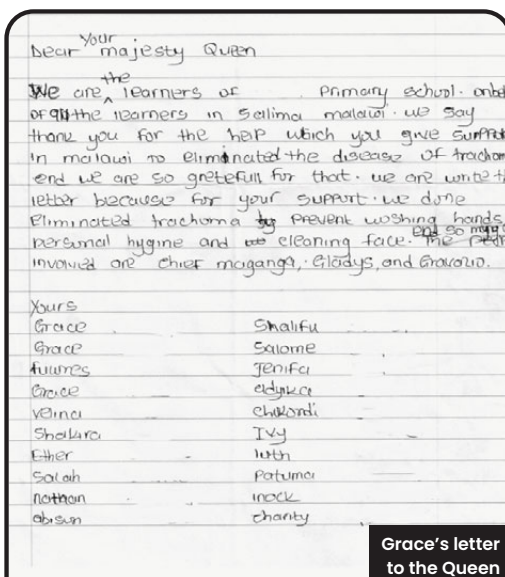 Dear Your majesty Queen
We are the learners of primary school. onbe
of all the learners in Salima malawi. we say
thank you for the help which you give support
in malawi to eliminated the disease of trachom
end we are so gretefull for that. we are write th
letter because for your support. we done
Eliminated trachoma by prevent woshing hands,
personal hygine and cleaning face. end so The
involved are chief maganga, Gladys, and
Yours
Grace Shalifu
Grace Salome
fuumes Jenifa
Grace
velina chikondi
Shakira Ivy
Ether luth
Salah Patuma
nathan inock
abisun charity
Grace's letter
to the Queen